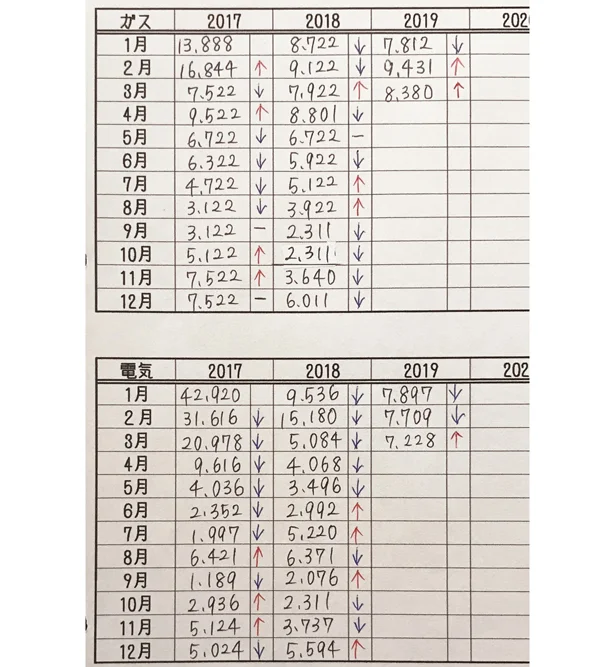 ガス 2017 2018 2019 202
1月 13,888 8.722 ↓ 7.812 ↓
2月 16,844 ↑ 9.122 ↓ 9,431 ↑
3月 7.522 ↓ 7,922 ↑ 8,380 ↑
4月 9,522 ↑ 8.801 ↓
5月 6,722 ↓ 6.722 −
6月 6.322 ↓ 5,922 ↓
7月 4,722 ↓ 5,122 ↑
8月 3,122 ↓ 3,922 ↑
9月 3,122 − 2,311 ↓
10月 5,122 ↑ 2,311 ↓
11月 7,522 ↑ 3.640 ↓
12月 7,522 − 6.011 ↓
電気 2017 2018 2019 202
1月 42,920 9,536 ↓ 7,897 ↓
2月 31,616 ↓ 15,180 ↓ 7,709 ↓
3月 20,978 ↓ 5,084 ↓ 7,228 ↑
4月 9,616 ↓ 4,068 ↓
5月 4,036 ↓ 3,496 ↓
6月 2,352 ↓ 2,992 ↑
7月 1,997 ↓ 5,220 ↑
8月 6,421 ↑ 6,371 ↓
9月 1,189 ↓ 2,076 ↑
10月 2,936 ↑ 2,311 ↓
11月 5,124 ↑ 3,737 ↓
12月 5,024 ↓ 5,594 ↑